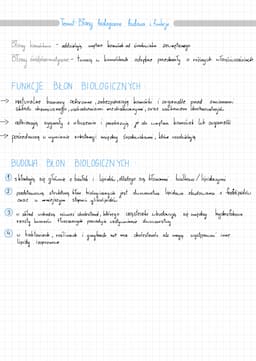 Temat: Błony biologiczne budowa i funkcje
Błony komórkowe - oddzielają wnętrze komórek od środowiska zewnętrznego
Błony śródplazmatyczne - tworzą w komórkach odrębne przedziały o różnych właściwościach
FUNKCJE BŁON BIOLOGICZNYCH:
→ naturalne bariery ochronne, zabezpieczają komórki i organelle przed zmianami
składu chemicznego, uszkodzeniami mechanicznymi, oraz wnikaniem drobnoustrojów
→ odbierają sygnały z otoczenia i przekazują je do wnętrza komórek lub organelli
→ pośredniczą w wymianie substancji między środowiskami, które rozdzielają
BUDOWA BŁON BIOLOGICZNYCH:
① składają się głównie z białek i lipidów, dlatego są błonami białkowo / lipidowymi
② podstawową strukturą błon biologicznych jest dwuwarstwa lipidowa zbudowana z fosfolipidów
oraz w mniejszym stopniu glikolipidów
③ w skład wchodzą również cholesterol, którego cząsteczki wbudowują się między hydrofobowe
reszty kwasów tłuszczowych powodując usztywnienie dwuwarstwy
④ w bakteriach, roślinach i grzybach nie ma cholesterolu ale mogą występować inne
lipidy izoprenowe